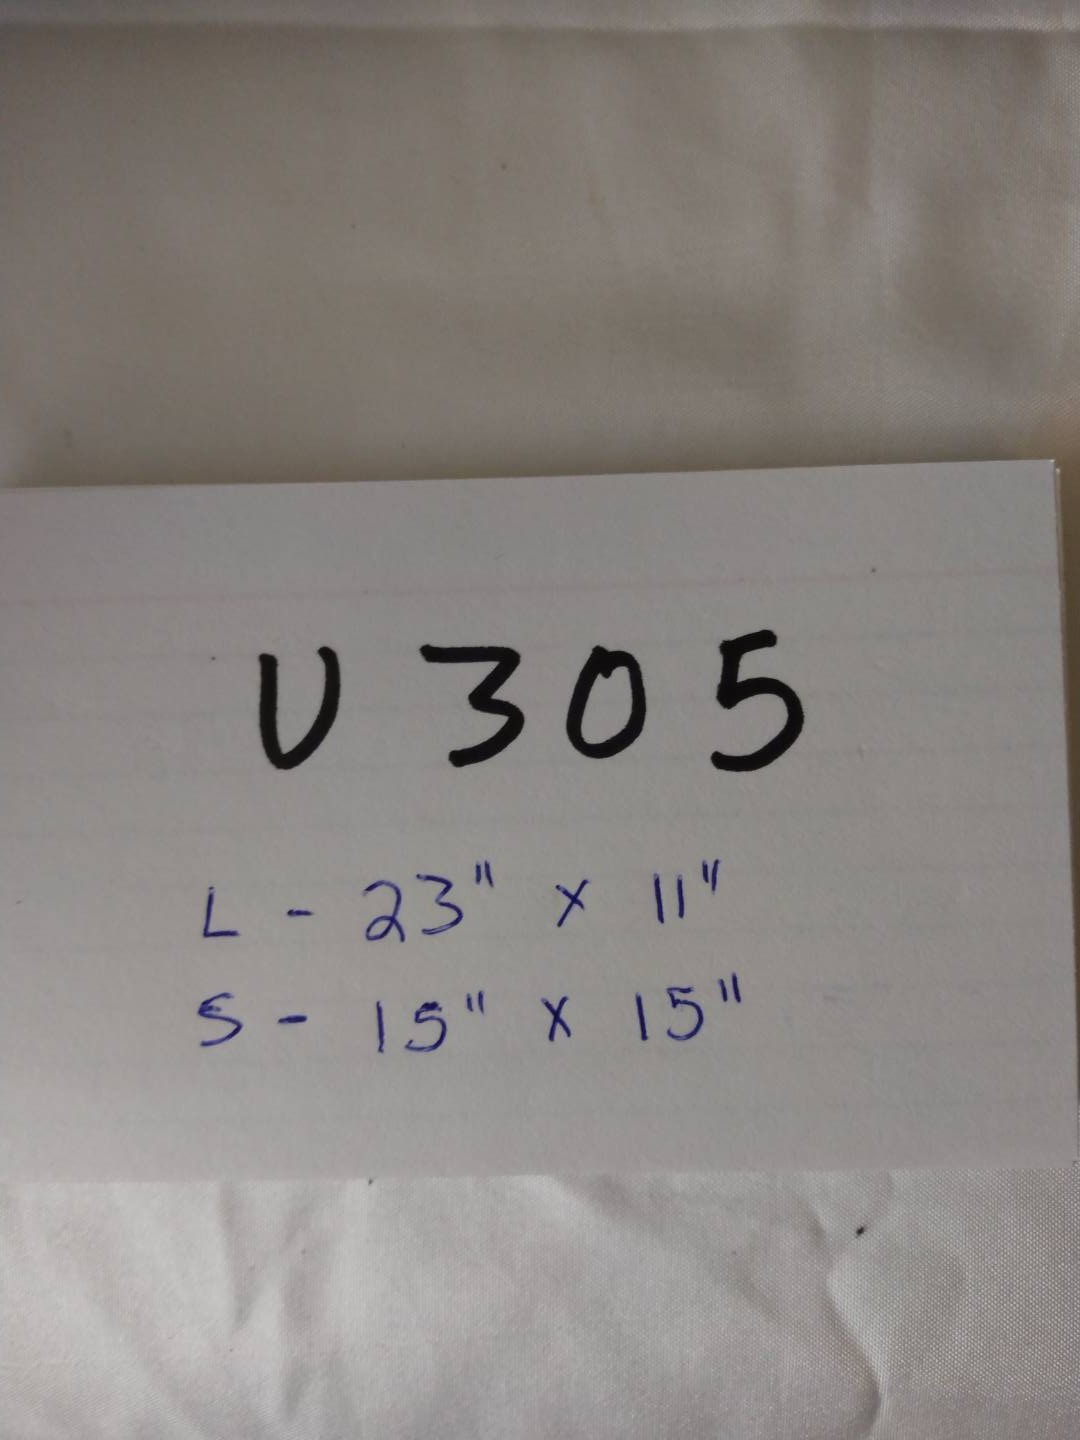 U 305
L - 23" x 11"
S - 15" x 15"